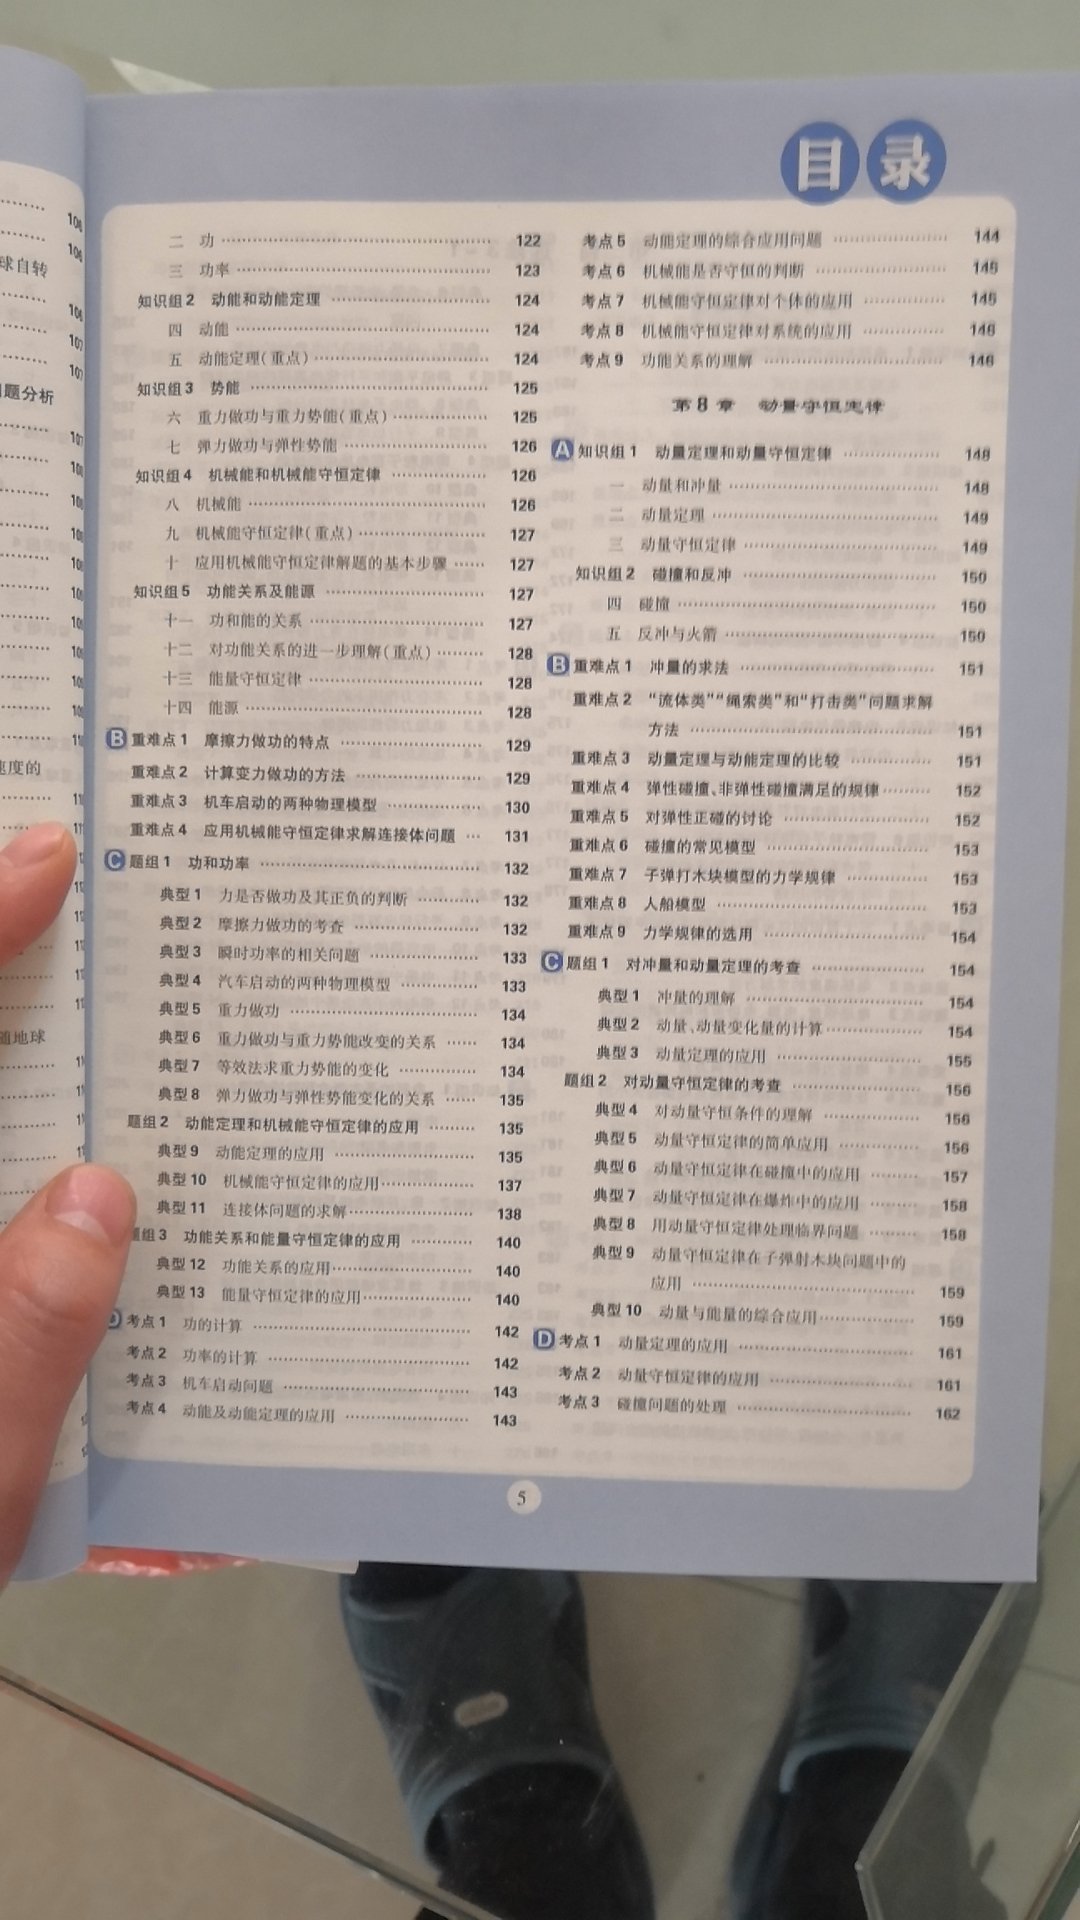 目录
二 功 122
三 功率 123
知识组2 动能和动能定理 124
四 动能 124
五 动能定理(重点) 124
知识组3 势能 125
六 重力做功与重力势能(重点) 125
七 弹力做功与弹性势能 126
知识组4 机械能和机械能守恒定律 126
八 机械能 126
九 机械能守恒定律(重点) 127
十 应用机械能守恒定律解题的基本步骤 127
知识组5 功能关系及能源 127
十一 功和能的关系 127
十二 对功能关系的进一步理解(重点) 128
十三 能量守恒定律 128
十四 能源 128
B 重难点1 摩擦力做功的特点 129
重难点2 计算变力做功的方法 129
重难点3 机车启动的两种物理模型 130
重难点4 应用机械能守恒定律求解连接体问题 131
C 题组1 功和功率 132
典型1 力是否做功及其正负的判断 132
典型2 摩擦力做功的考查 132
典型3 瞬时功率的相关问题 133
典型4 汽车启动的两种物理模型 133
典型5 重力做功 134
典型6 重力做功与重力势能改变的关系 134
典型7 等效法求重力势能的变化 134
典型8 弹力做功与弹性势能变化的关系 135
题组2 动能定理和机械能守恒定律的应用 135
典型9 动能定理的应用 135
典型10 机械能守恒定律的应用 137
典型11 连接体问题的求解 138
题组3 功能关系和能量守恒定律的应用 140
典型12 功能关系的应用 140
典型13 能量守恒定律的应用 140
D 考点1 功的计算 142
考点2 功率的计算 142
考点3 机车启动问题 143
考点4 动能及动能定理的应用 143
考点5 动能定理的综合应用问题 144
考点6 机械能是否守恒的判断 145
考点7 机械能守恒定律对个体的应用 145
考点8 机械能守恒定律对系统的应用 146
考点9 功能关系的理解 146
第8章 动量守恒定律
A 知识组1 动量定理和动量守恒定律 148
一 动量和冲量 148
二 动量定理 149
三 动量守恒定律 149
知识组2 碰撞和反冲 150
四 碰撞 150
五 反冲与火箭 150
B 重难点1 冲量的求法 151
重难点2 “流体类”“绳索类”和“打击类”问题求解
方法 151
重难点3 动量定理与动能定理的比较 151
重难点4 弹性碰撞、非弹性碰撞满足的规律 152
重难点5 对弹性正碰的讨论 152
重难点6 碰撞的常见模型 153
重难点7 子弹打木块模型的力学规律 153
重难点8 人船模型 153
重难点9 力学规律的选用 154
C 题组1 对冲量和动量定理的考查 154
典型1 冲量的理解 154
典型2 动量、动量变化量的计算 154
典型3 动量定理的应用 155
题组2 对动量守恒定律的考查 156
典型4 对动量守恒条件的理解 156
典型5 动量守恒定律的简单应用 156
典型6 动量守恒定律在碰撞中的应用 157
典型7 动量守恒定律在爆炸中的应用 158
典型8 用动量守恒定律处理临界问题 158
典型9 动量守恒定律在子弹射木块问题中的
应用 159
典型10 动量与能量的综合应用 159
D 考点1 动量定理的应用 161
考点2 动量守恒定律的应用 161
考点3 碰撞问题的处理 162
5
106
106
球自转
106
107
107
题分析
速度的
随地球